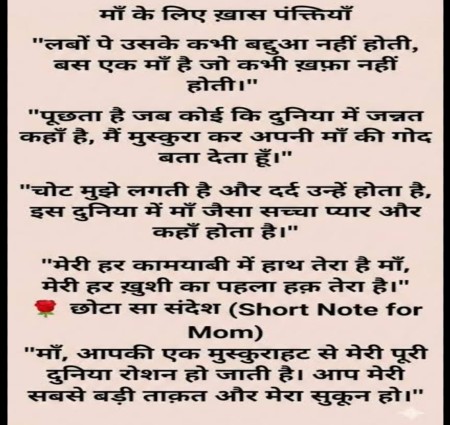 माँ के लिए ख़ास पंक्तियाँ
"लबों पे उसके कभी बद्दुआ नहीं होती,
बस एक माँ है जो कभी ख़फ़ा नहीं
होती।"
"पूछता है जब कोई कि दुनिया में जन्नत
कहाँ है, मैं मुस्कुरा कर अपनी माँ की गोद
बता देता हूँ।"
"चोट मुझे लगती है और दर्द उन्हें होता है,
इस दुनिया में माँ जैसा सच्चा प्यार और
कहाँ होता है।"
"मेरी हर कामयाबी में हाथ तेरा है माँ,
मेरी हर ख़ुशी का पहला हक़ तेरा है।"
🌹 छोटा सा संदेश (Short Note for
Mom)
"माँ, आपकी एक मुस्कुराहट से मेरी पूरी
दुनिया रोशन हो जाती है। आप मेरी
सबसे बड़ी ताक़त और मेरा सुकून हो।"